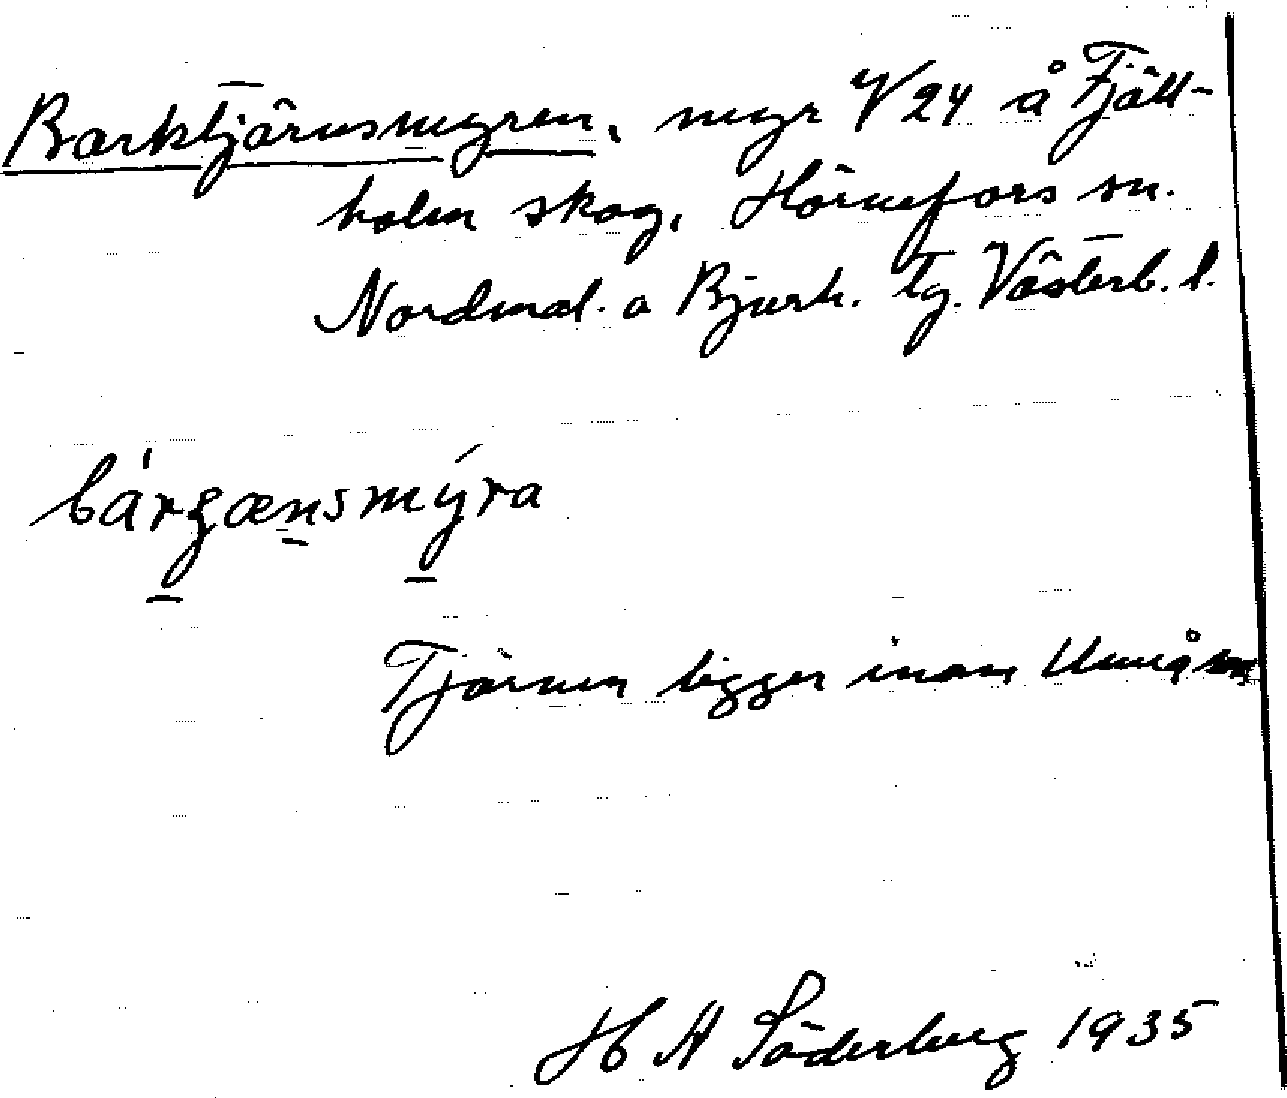 Barktjärnsmyren, myr V24 å Fjäll-
holm skog, Hörnefors sn.
Nordmal. o Bjurh. tg. Västerb. l.
bárgænsmýra
Tjärnen ligger inom Umeå sn
H A Söderberg 1935